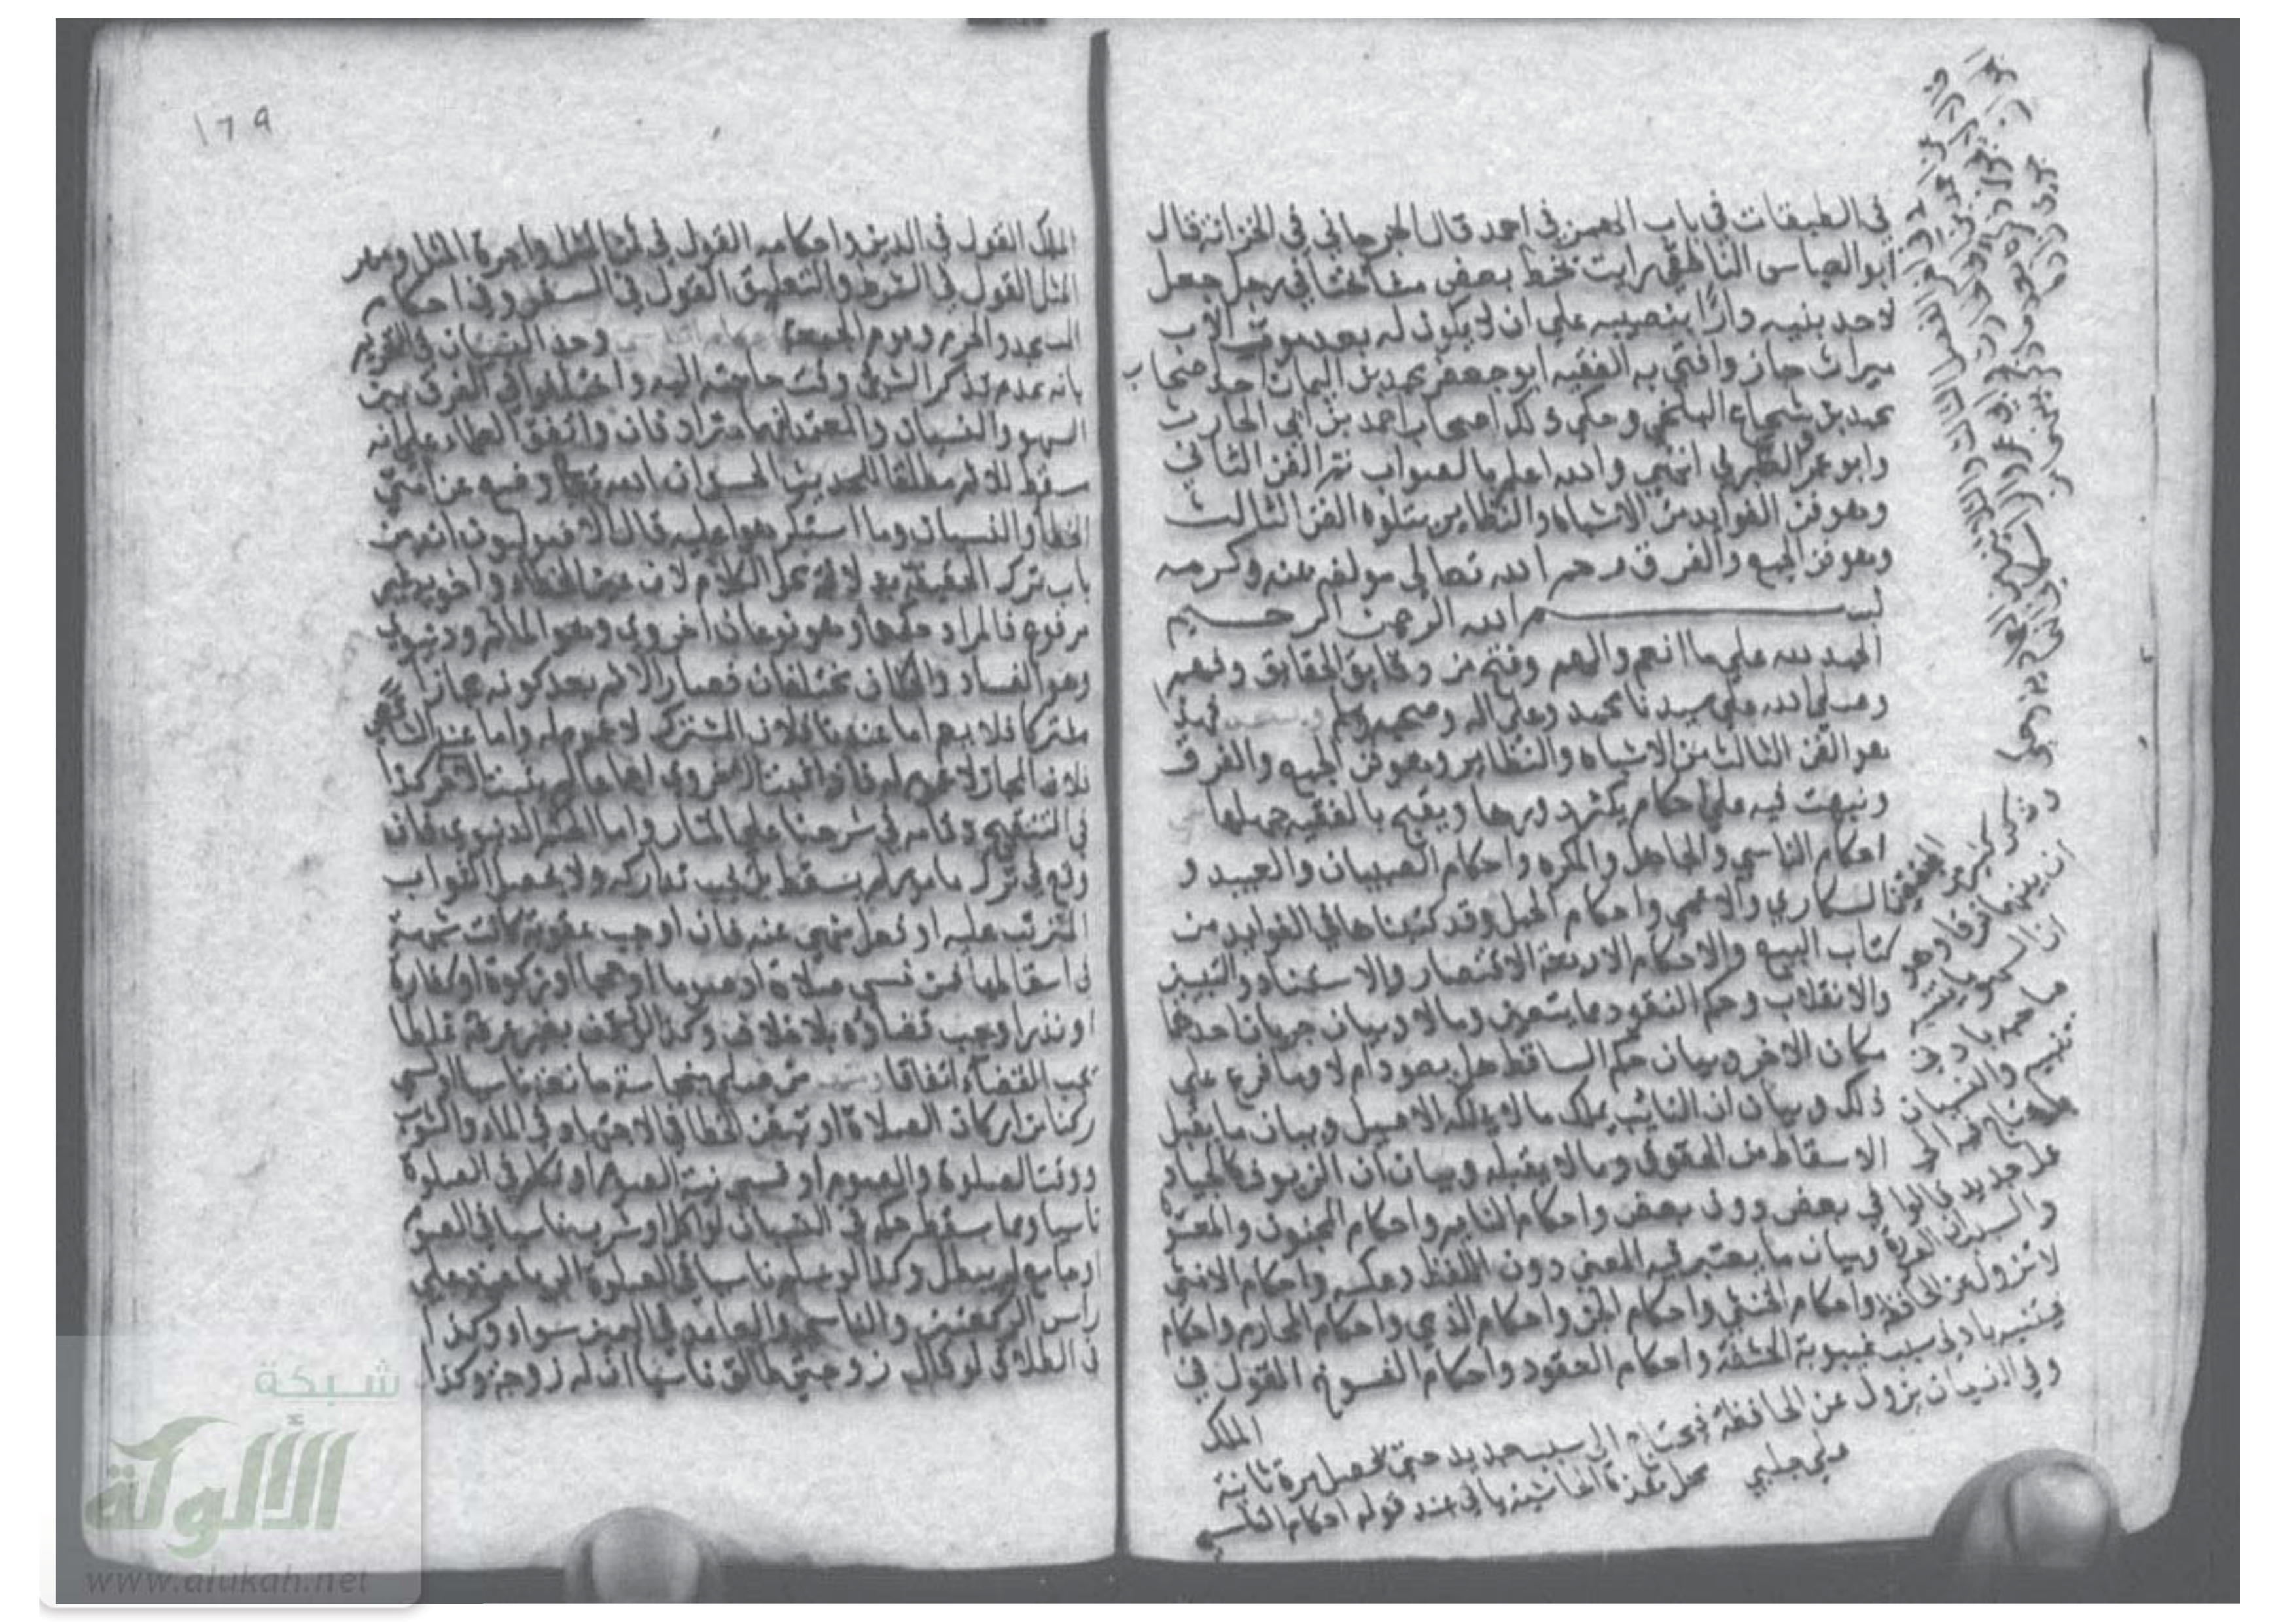 في الطبقات في باب الهمز في احمد قال الجرجاني في الخزانة قال
ابو العباس الناطفي رايت بخط بعض مشائخنا في رجل جعل
لاحد بنيه دارا بنصيبه علي ان لا يكون له بعد موت الاب
ميراث جاز وافتي به الفقيه ابو جعفر محمد بن اليمان احد اصحاب
محمد بن شجاع البلخي وحكي ذلك اصحاب احمد بن ابي الحارث
وابو عمر الطبري انتهي والله اعلم بالصواب تم الفن الثاني
وهو فن الفوايد من الاشباه والنظاير يتلوه الفن الثالث
وهو فن الجمع والفرق رحم الله تعالي مولفه بمنه وكرمه
بسم الله الرحمن الرحيم
الحمد لله علي ما انعم والهم وفتح من دقايق الحقايق وفهم
وصلي الله علي سيدنا محمد وعلي اله وصحبه وسلم وبعد فهذا
هو الفن الثالث من الاشباه والنظاير وهو فن الجمع والفرق
ونبهت فيه علي احكام يكثر دورها ويقبح بالفقيه جهلها
احكام الناسي والجاهل والمكره واحكام الصبيان والعبيد و
السكاري والاعمي واحكام الحمل وقد كتبناها في الفوايد من
كتاب البيع والاحكام الاربعة الاقتصار والاستناد والتبيين
والانقلاب وحكم النقود ما يتعين وما لا وبيان جريان احدهما
مكان الاخر وبيان حكم الساقط هل يعود ام لا وما فرع علي
ذلك وبيان ان النائب يملك ما لا يملكه الاصيل وبيان ما يقبل
الاسقاط من الحقوق وما لا يقبله وبيان ان الزيوف كالجياد
في بعض دون بعض واحكام النايم واحكام المجنون والمعتوه
وبيان ما يعتبر فيه المعني دون اللفظ وعكسه واحكام الانثي
واحكام الخنثي واحكام الجن واحكام الذمي واحكام المحارم واحكام
غيبوبة الحشفة واحكام العقود واحكام الفسوخ القول في
الملك
وذكر كثير من المحققين
ان بينهما فرقا وهو
ان السهو ما ينتبه
صاحبه بادني
تنبيه والنسيان
يحتاج فيه الي
عمل جديد قالوا
لا تزول عن الحافظة
فينتبه بادني سبب
وفي النسيان يزول عن الحافظة فيحتاج الي سبب جديد حتي يحصل مرة ثانية
علي جلبي محل هذه الحاشية ياتي عند قوله احكام الناسي
١٦٩
الملك القول في الدين واحكامه القول في ثمن المثل واجرة المثل ومهر
المثل القول في الشرط والتعليق القول في السفر وفي احكام
المسجد والحرم ويوم الجمعة وحد النسيان في التحرير
بانه عدم تذكر الشي وقت حاجته اليه واختلفوا في الفرق بين
السهو والنسيان والمعتمد انهما مترادفان واتفق العلماء علي انه
مسقط للاثم مطلقا للحديث الحسن ان الله تعالي وضع عن امتي
الخطا والنسيان وما استكرهوا عليه قال الاصوليون انه من
باب ترك الحقيقة بدلالة محل الكلام لان عين الخطاء واخويه غير
مرفوع فالمراد حكمها وهو نوعان اخروي وهو الماثم ودنيوي
وهو الفساد والحكمان مختلفان فصار الاثم بعد كونه مجازا
مشتركا فلا يعم اما عندنا فلان المشترك لا عموم له واما عند الشافعي
فلان المجاز لا عموم له فاذا ثبت الاخروي اجماعا لم يثبت الاخر كذا
في التنقيح وتمامه في شرحنا علي المنار واما الحكم الدنيوي فان
وقع في ترك مامور لم يسقط بل يجب تداركه ولا يحصل الثواب
المترتب عليه او فعل منهي عنه فان اوجب عقوبة كانت شبهة
في اسقاطها فمن نسي صلاة او صوما او حجا او زكوة او كفارة
او نذرا وجب قضاؤه بلا خلاف وكذا لو وقف بغير عرفة غلطا
يجب القضاء اتفاقا ومنها من صلي بنجاسة مانعة ناسيا او نسي
ركنا من اركان الصلاة او تيقن الخطا في الاجتهاد في الماء والثوب
ووقت الصلوة والصوم او نسي نية الصوم او تكلم في الصلوة
ناسيا ومما سقط حكمه في النسيان لو اكل او شرب ناسيا في الصوم
او جامع لم يبطل وكذا لو سلم ناسيا في الصلوة الرباعية علي
راس الركعتين والناسي والعامد في اليمين سواء وكذا
في الطلاق لو قال زوجتي طالق ناسيا ان له زوجة وكذا
شبكة
الألوكة
www.alukah.net